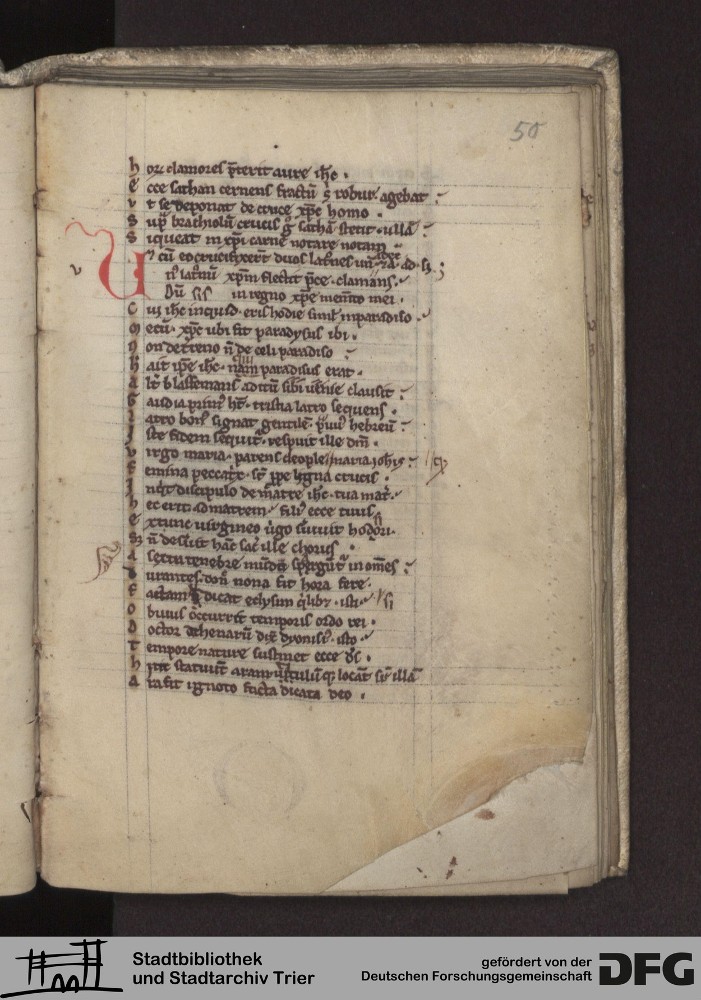 50
h orum clamores pͥterit aure ihc .
e cce sathan cernens fractū ꝙ robur agebat
v t se deponat de cruce xp̄e homo .
s up brachiolū crucis sathā stetit ullā
s iqueat in xp̄i carne notare notam
cū eo crucifixerūt duos latͦnes
xp̄m flectit p̄ce clamans
Dū sis in regno xp̄e memto mei .
c ui ihc inquid eris hodie simul inparadiso
m ecū xp̄e ubi fit paradysus ibi .
n on deterreno n̄ de celi paradiso
h ait ip̄e ihc nam paradisus erat .
a lt̄ blasfemans aditū sibi uenie clausit
g audia primꝰ ht tristia latro sequens .
l atro bonꝰ signat gentilē pͥuiꝰ hebreū
i ste fidem sequitͬ respuit ille dm̄ .
v irgo maria parens cleophe maria iohis
f emina peccatͬx st̄ ꝓpe ligna crucis .
i nqͥt discipulo de mat̄re ihc tua mat̄
h ec erit ad matrem filiꝰ ecce tuus
e xtunc uirgineo uͥgo seruit honori .
n̄ desͥuit hāc sacͬ ille chorus .
a sexta tenebre mūdū spargūtͬ in om̄es
d urantes donͨ nona fit hora fere
f actam dicat eclysim qͥlibꝫ isti si
o buius occurrit temporis ordo rei .
d octor athenarū dix̄ dyonisiꝰ isto
t empore nature sustinet ecce dš .
h statuūt aram titulūqꝫ locāt suꝑ illā
a ra fit ignoto facta dicata deo .
Stadtbibliothek
und Stadtarchiv Trier
gefördert von der
Deutschen Forschungsgemeinschaft
DFG